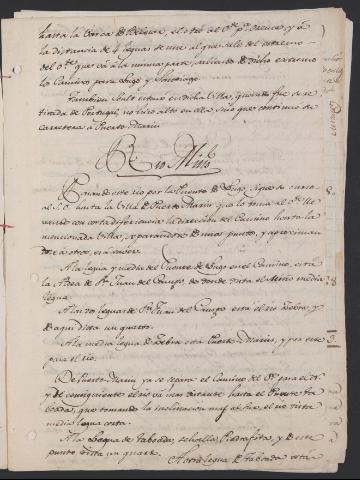 hasta la Barca de Belesar, el otro al O. p.r Orence, y á
la distancia de 4 leguas se une al que sale del extremo
del O. que vá á la misma parte, saliendo de dicho extremo
los Caminos para Lugo y Santiago.
Tambien Soult estuvo en dicha Villa, quando fue su re-
tirada de Portugal, no hizo alto en ella sino que continuó su
carretera á Puerto Marin
Rio Miño
este rio por la Puente de Lugo, sigue su curso
al S.O. hasta la Villa de Puerto Marin que lo toma al O. lle-
vando con corta diferiencia la direccion del Camino hasta la
mencionada Villa, separandose de unos puntos, y aproximan-
dose á otros, es á saver.
A la legua y media del Puente de Lugo en el Camino, está
la Aldea de S.n Juan del Campo, de donde dista el Miño media
legua.
A las dos leguas de S.n Juan del Campo está el rio Bebra y
de aqui dista un quarto.
A la media legua de Bebra está Puerto Marin, y por este
pasa el rio.
De Puerto Marin ya se separa el Camino del O. para el
y de consiguiente el rio va mas distante hasta el
boada, que tomando la inclinacion mas al Sur, el rio dista
media legua corta.
A la legua de taboada, se halla Piedrafita, y de este
punto dista un quarto.
A otra legua de taboada está